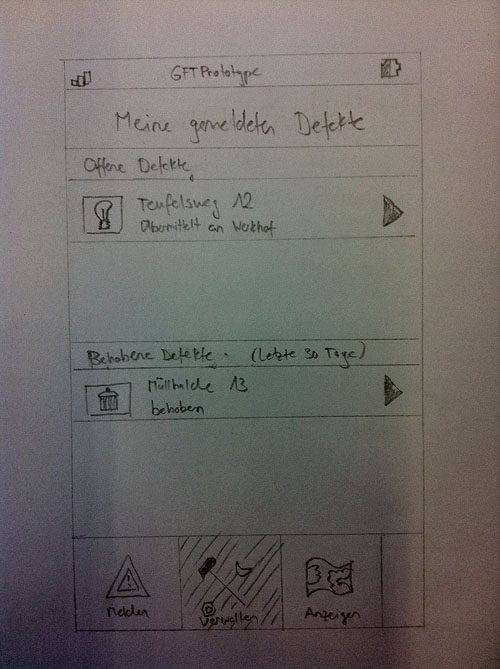 GFTPrototype
Meine gemeldeten Defekte
Offene Defekte
Teufelsweg 12
Übermittelt an Werkhof
Behobene Defekte. (letzte 30 Tage)
Müllhalde 13
behoben
Melden
Verwalten
Anzeigen